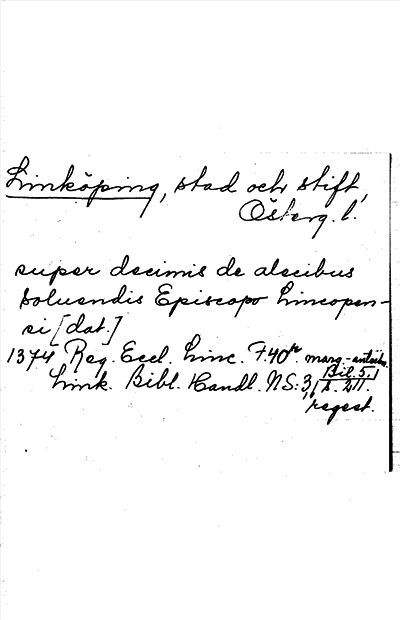 Linköping, stad och stift,
Österg. l.
super decimis de alecibus
soluendis Episcopo Lincopen-
si [dat.]
1374 Reg. Eccl. Linc. F. 40r. marg.-anteckn.
Link. Bibl. Handl. NS: 3, Bil. 5,
s. 211.
regest.